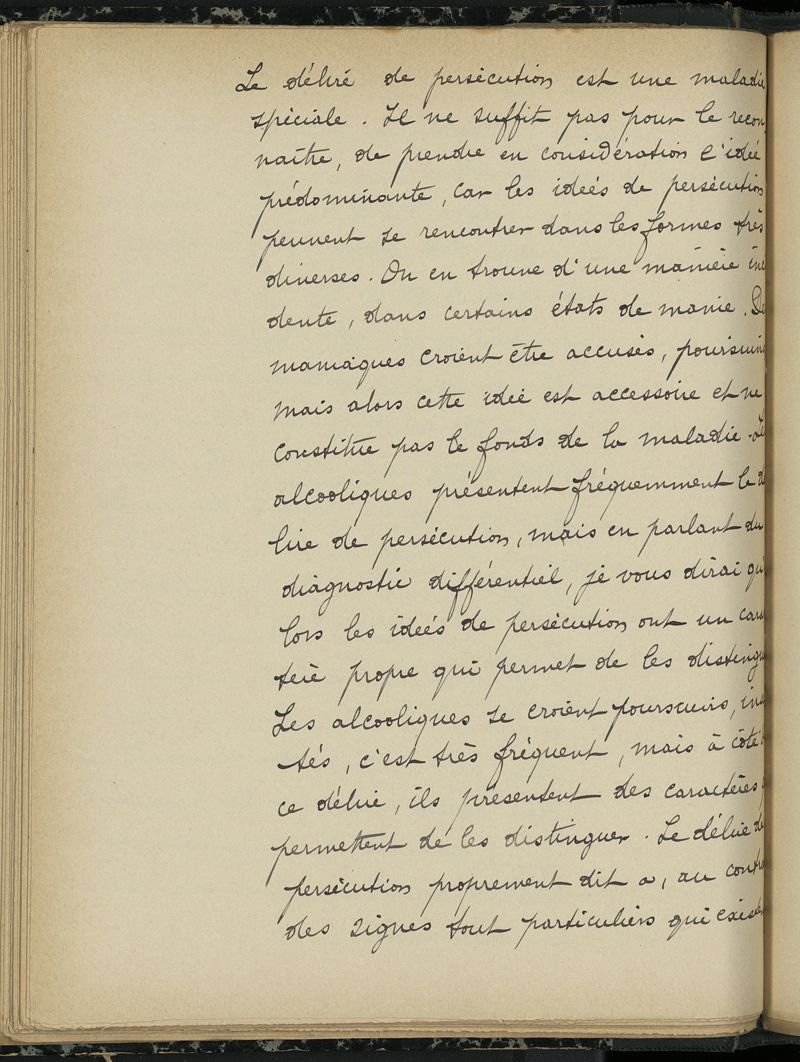 Le délire de persécution est une maladie
spéciale. Il ne suffit pas pour le recon
naître, de prendre en considération l'idée
prédominante, car les idées de persécution
peuvent se rencontrer dans les formes très
diverses. On en trouve d'une manière inci
dente, dans certains états de manie. De
maniaques croient être accusés, poursuivi
mais alors cette idée est accessoire et ne
constitue pas le fonds de la maladie. Le
alcooliques présentent fréquemment le d
lire de persécution, mais en parlant du
diagnostic différentiel, je vous dirai qu'
lors les idées de persécution ont un cara
tère propre qui permet de les distingu
Les alcooliques se croient poursuivis, in
tés, c'est très fréquent, mais à côté
ce délire, ils présentent des caractères
permettent de les distinguer. Le délire de
persécution proprement dit a, au contr
des signes tout particuliers qui existe